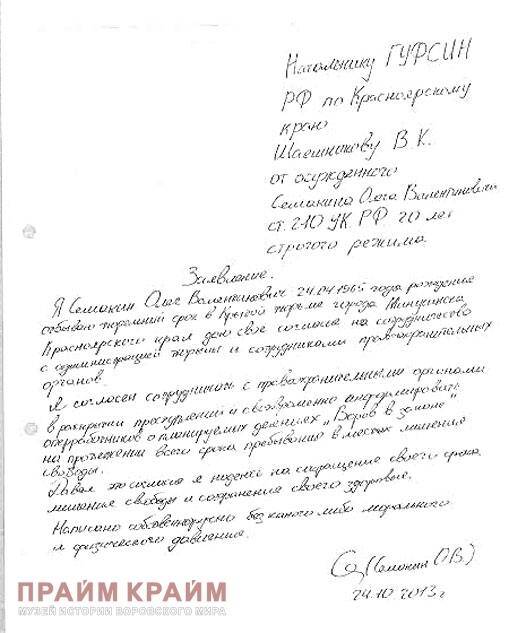 Начальнику ГУФСИН
РФ по Красноярскому
краю
Шаешникову В.К.
от осужденного
Семакина Олега Валентиновича
ст. 210 УК РФ 20 лет
строгого режима.
Заявление.
Я Семакин Олег Валентинович 24.04.1965 года рождение
отбываю тюремный срок в Крытой тюрьме города Минусинска
Красноярского края даю свое согласие на сотрудничество
с администрацией тюрьмы и сотрудниками правоохранительных
органов.
Я согласен сотрудничать с правоохранительными органами
в раскрытии преступлений и своевременно информировать
оперработников о планируемых деяниях „Воров в законе"
на протяжении всего срока пребывание в местах лишения
свободы.
Давая это согласие я надеюсь на сокращение своего срока
лишение свободы и сохранение своего здоровье.
Написано собственноручно без какого либо морального
и физического давления.
(Семакин О.В.)
24.10.2013 г
ПРАЙМ КРАЙМ
МУЗЕЙ ИСТОРИИ ВОРОВСКОГО МИРА